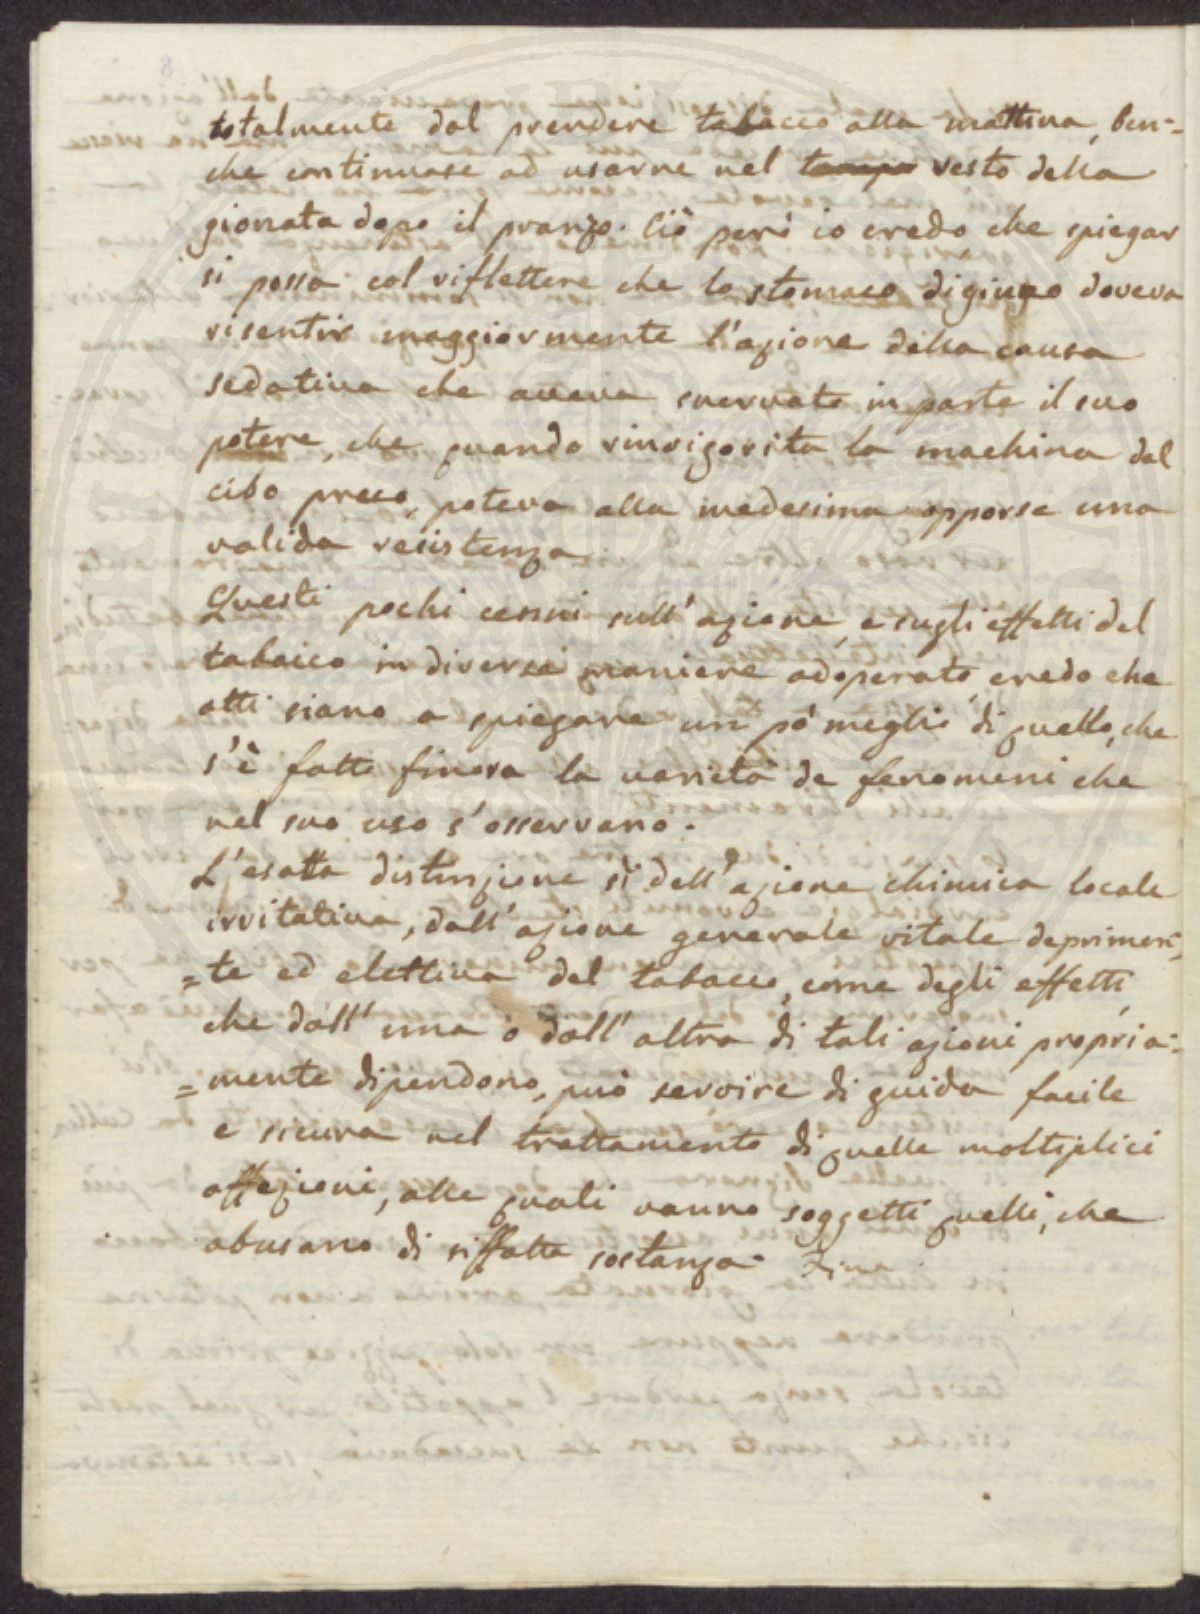 totalmente dal prendere tabacco alla mattina, ben-
che continuase ad usarne nel tempo resto della
gionata dopo il pranzo. Ciò però io credo che spiegar
si possa col riflettere che lo stomaco digiuno doveva
risentir maggiormente l'azione della causa
sedativa che aveva snervato in parte il suo
potere, che quando rinvigorita la machina dal
cibo preso, poteva alla medesima opporse una
valida resistenza.
Questi pochi cenni sull'azione, e sugli effetti del
tabacco in diverse maniere adoperato, credo che
atti siano a spiegare un pò meglio di quello, che
s'è fatto finora la varietà de fenomeni che
nel suo uso s'osservano.
L'esatta distinzione sì dell'azione chimica locale
irritativa, dall'azione generale vitale deprimen=
=te ed elettiva del tabacco, come degli effetti,
che dall'una o dall'altra di tali azioni propria=
=mente dipendono, può servire di guida facile
e sicura nel trattamento di quelle moltiplici
affezioni, alle quali vanno soggetti quelli, che
abusano di siffatta sostanza. Fine